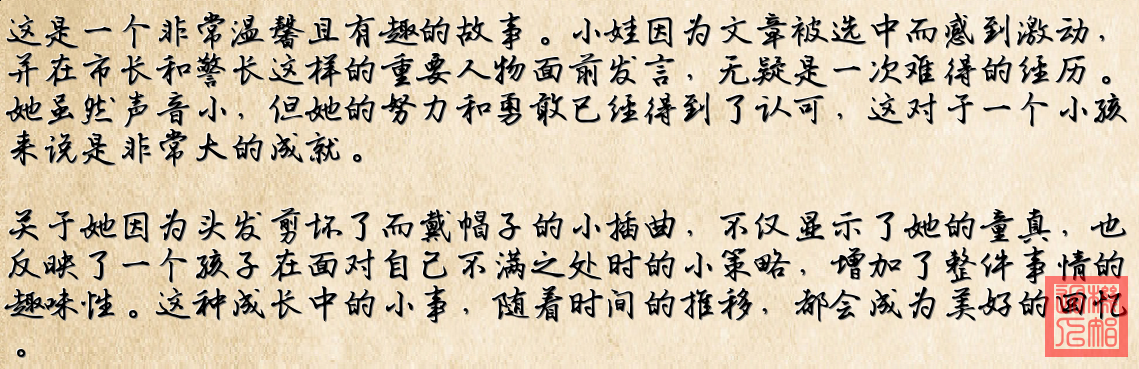 这是一个非常温馨且有趣的故事。小娃因为文章被选中而感到激动，
并在市长和警长这样的重要人物面前发言，无疑是一次难得的经历。
她虽然声音小，但她的努力和勇敢已经得到了认可，这对于一个小孩
来说是非常大的成就。
关于她因为头发剪坏了而戴帽子的小插曲，不仅显示了她的童真，也
反映了一个孩子在面对自己不满之处时的小策略，增加了整件事情的
趣味性。这种成长中的小事，随着时间的推移，都会成为美好的回忆
。